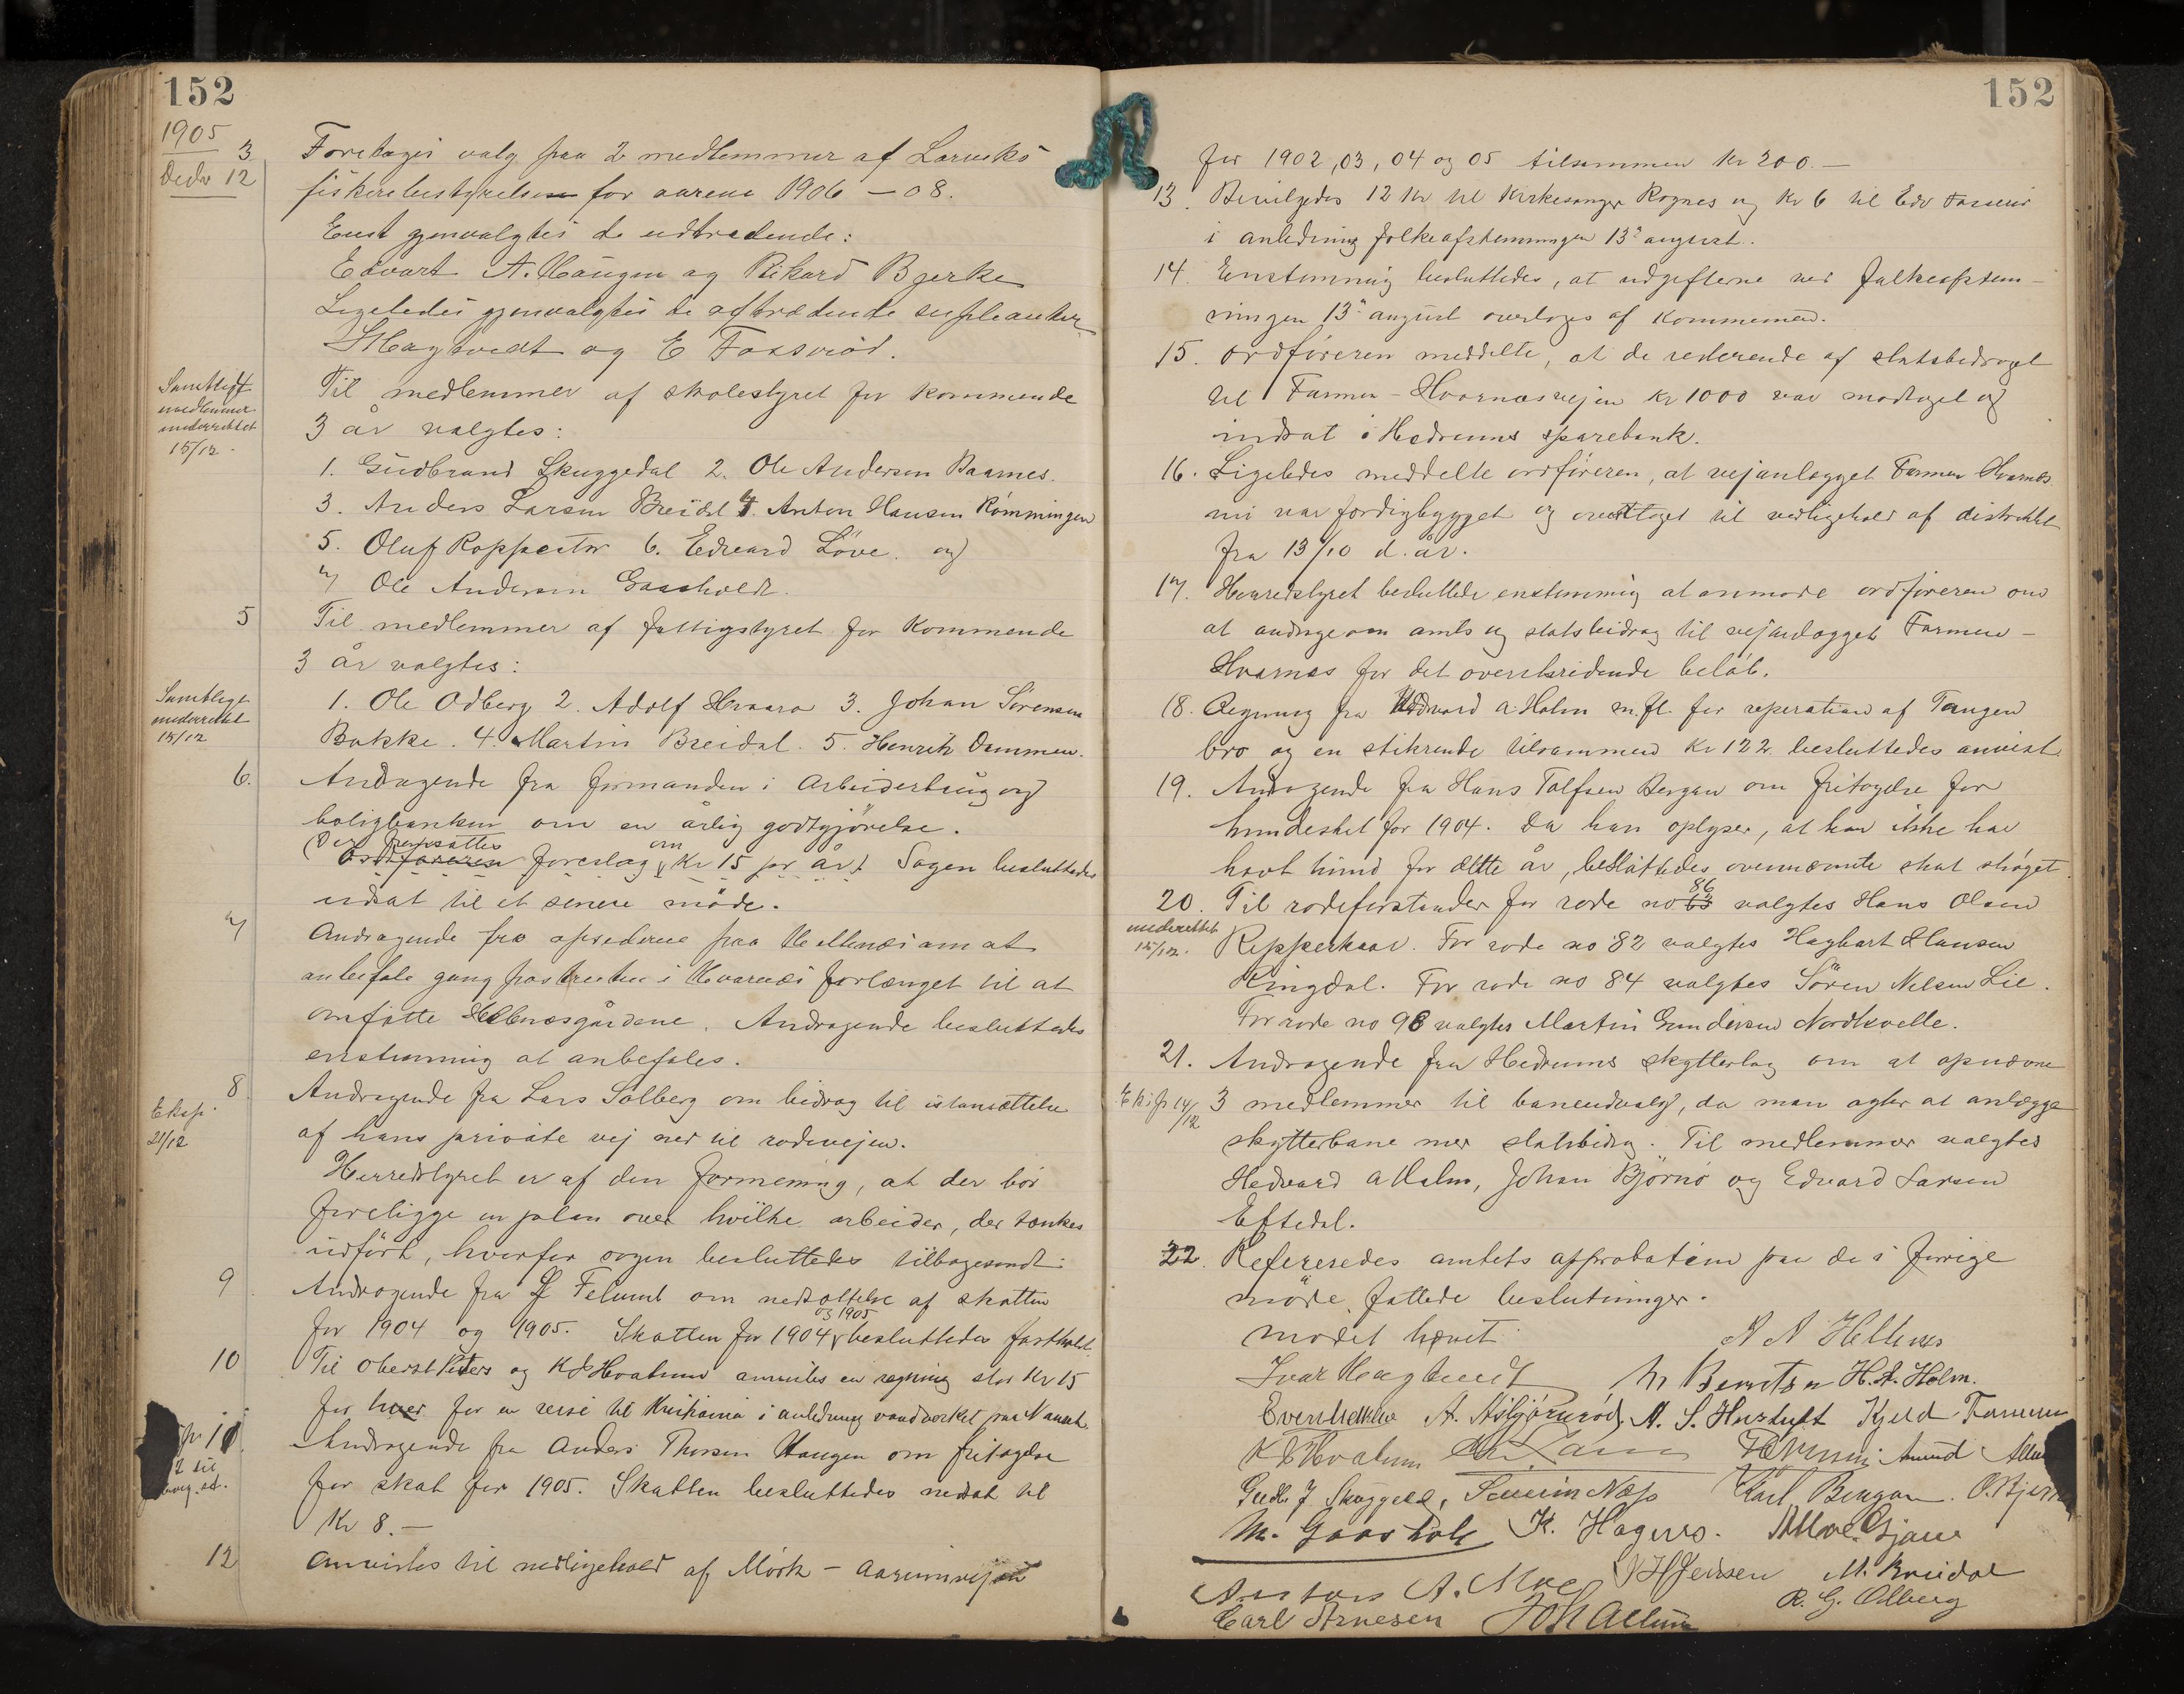 152
1905
Decbr 12
3 Foretoges valg paa 2 medlemmer af Larviks
fiskeribestyrelsen for aarene 1906 – 08.
Enst gjenvalgtes de udtrædende:
Edvart A. Haugen og Rikard Bjerke
Ligeledes gjenvalgtes de aftrædende supleanter
Hagtvedt og E Fossriød.
Samtligt
medlemmer
underrettet
15/12.
Til medlemmer af skolestyret for kommende
3 år valgtes:
1. Gudbrand Skuggedal 2. Ole Andersen Baarnes.
3. Anders Larsen Breidal 4. Anton Hansen Rømmingen
5. Oluf Roppestar 6. Edvard Löve. og
7 Ole Andersen Gaasholdt.
5 Til medlemmer af fattigstyret for kommende
3 år valgtes:
Samtlige
underrettet
15/12
1. Ole Odberg 2. Adolf Hvaara 3. Johan Sörensen
Bakke. 4. Martin Breidal. 5. Henrik Dammen.
6. Andragende fra formanden i Arbeiderbrug og
boligbanken om en årlig godtgjörelse.
(Der fremsattes
Ordföreren foreslog om Kr 15 pr år). Sagen besluttedes
udsat til et senere möde.
7 Andragende fra opsidderne paa Hellenæs om at
anbefale gang postruten i Kvarnæs forlænget til at
omfatte Hellenæsgårdene. Andragende besluttedes
enstemmig at anbefales.
8. Andragende fra Lars Solberg om bidrag til istansættelse
Eksp.
21/12
af hans private vej ned til rodevejen.
Herredstyret er af den formening, at der bör
foreligge en plan over hvilke arbeider, der tænkes
udfört, hvorfor sagen besluttedes tilbagesendt.
9. Andragende fra Felumb om nedsættelse af skatten
for 1904 og 1905. Skatten for 1904 og 1905 besluttedes fastholdt.
10 Til Oberst Peters og K S Hvatum anvistes en regning stor Kr 15
for hver for en reise til Kristiania i anledning vandverket paa Nanset.
11. Andragende fra Anders Thorsen Haugen om fritagelse
for skat for 1905. Skatten besluttedes nedsat til
Kr 8.—
12 Anvistes til vedligehold af Mörk – Aarumvejen
152
for 1902, 03, 04 og 05 tilsammen Kr 200.—
13. Bevilgedes 12 Kr til Kirkesanger Rognes og Kr 6 til Edv
i anledning folkeafstemningen 13de august.
14. Enstemmig besluttedes, at udgifterne ved folkeafstem-
ningen 13de august overtages af kommunen.
15. Ordföreren meddelte, at de resterende af statsbidraget
til Farmen – Hvarnæsvejen Kr 1000 var modtaget og
indsat i Hedrums sparebank.
16. Ligeledes meddelte ordföreren, at vejanlægget Farmen Hvarnes
nu var færdigbygget og overtaget til vedligehold af distriktet
fra 13/10 d. år.
17. Herredstyret besluttede enstemmig at anmode ordföreren om
at andrage om amts og statsbidrag til vejanlægget Farmen –
Hvarnæs for det overskridende belöb.
18. Regning fra Hedvard A. Holm m.fl. for reperation af Tangen
bro og en stikrende tilsammen Kr 122 besluttedes anvist.
19. Andragende fra Hans Tolfsen Bergan om fritagelse for
hundeskat for 1904. Da han oplyser, at han ikke har
havt hund for dette år, besluttedes ovennævnte skat ströget.
20. Til rodeforstander for rode no 86 valgtes Hans Olsen
underrettet
15/12.
Ripperkaas. For rode no 82 valgtes Hagbart Hansen
Ringdal. For rode no 84 valgtes Sören Nilsen Lie.
For rode no 98 valgtes Martin Gundersen Nordkvelle.
21. Andragende fra Hedrums skytterlag om at opnævne
Eksp 14/12
3 medlemmer til baneudvalg, da man agter at anlægge
skytterbane med statsbidrag. Til medlemmer valgtes
Hedvard A Holm, Johan Björnö og Edvard Larsen
Eftedal.
22. Refereredes amtets approbation paa de i forrige
möde fattede beslutninger.
Mödet hævet.
A A Hellenes
Ivar Hagtvedt M Berntsen H. A. Holm.
A. Asbjörnröd, A. S. Hustuft Kjeld Farmen
K S Hvatum Amund
Gudb. J Skuggedal, Severin Næss Karl Bergan. O. Bjer
M. Gaasholt K. Hagnes. Gjone
Anton A. Moe H Jensen M. Breidal
Carl Arnesen Joh Allum R. G. Odberg